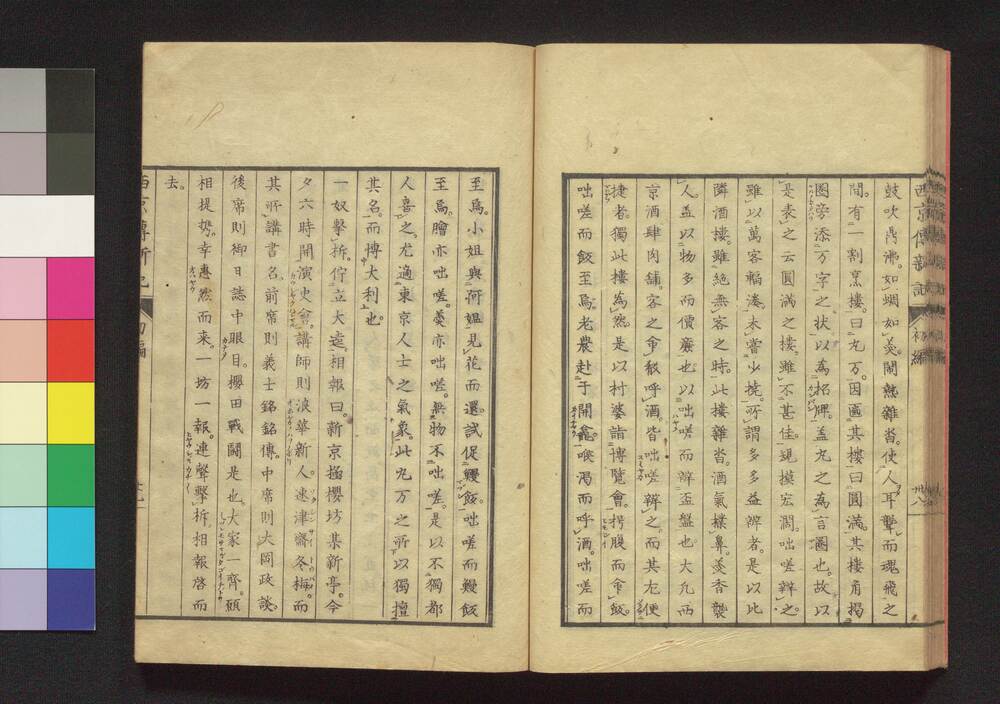 西京傳新記 初編
鼓吹鼎沸。如蜩如羹。鬧熱雜沓。使人耳聾而魂飛之
間。有一割烹樓。曰丸万。因匾其樓曰圓滿。其樓角揭
圈旁添万字之狀以為招牌。蓋丸之為言圈也。故以
是表之云圓滿之樓。雖不甚佳。規摸宏濶。咄嗟辦之。
雖以萬客輻湊未嘗少撓。所謂多多益辨者。是以比
隣酒樓。雖絕無客之時。此樓雜沓。酒氣樸鼻。羹香襲
人。蓋以物多而價廉也。以咄嗟而辨盃盤也。大凡西
京酒肆肉舖。客之命飯呼酒。皆咄嗟辨之。而其尤便
捷者。獨此樓為然。是以村婆詣博覽會。枵腹而命飯。
咄嗟而飯至焉。老農赴于開龕。喉渴而呼酒。咄嗟而
至焉。小姐與荷媼見花而還。試促鰻飯。咄嗟而鰻飯
至焉。膾亦咄嗟。羹亦咄嗟。無物不咄嗟。是以不獨都
人喜之。尤適東京人士之氣象。此丸万之所以獨擅
其名。而博大利也。
一奴擊柝。佇立大遠。相報曰。新京極櫻坊某新亭。今
夕六時開演史會。講師則浪華新人。速津齋冬梅。而
其所講書名。前席則義士銘銘傳。中席則大岡政談。
後席則御日誌中眼目。櫻田戰鬪是也。大家一齊。願
相提契。幸惠然而來。一坊一報。連聲擊柝。相報啓而
去。
西京傳新記 初編